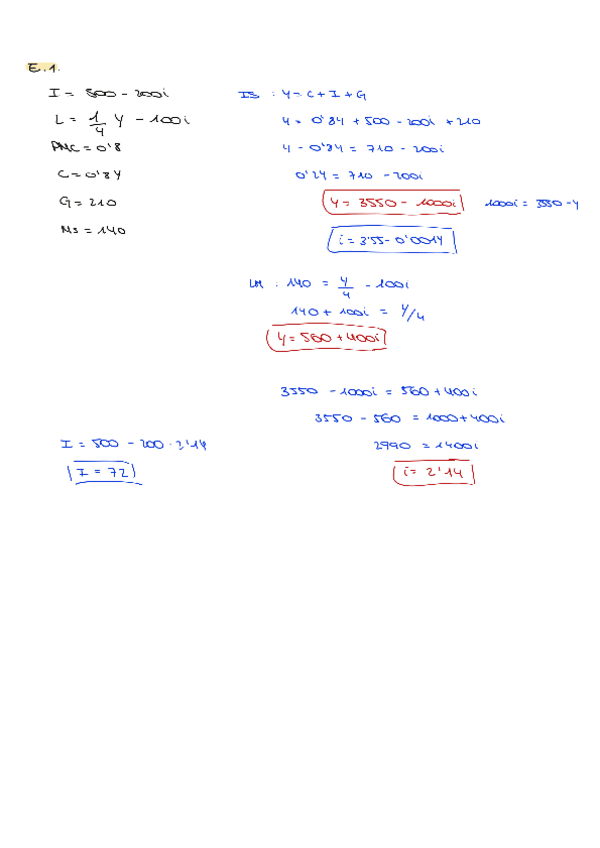 E.1.
I = 500 - 200i
L = 1/4 Y - 100i
PMC = 0'8
C = 0'8Y
G = 210
Ms = 140
IS : Y = C + I + G
Y = 0'8Y + 500 - 200i + 210
Y - 0'8Y = 710 - 200i
0'2Y = 710 - 200i
Y = 3550 - 1000i 1000i = 3550 - Y
i = 3'55 - 0'001Y
LM : 140 = Y/4 - 100i
140 + 100i = Y/4
Y = 560 + 400i
3550 - 1000i = 560 + 400i
3550 - 560 = 1000 + 400i
2990 = 1400i
i = 2'14
I = 500 - 200 · 2'14
I = 72